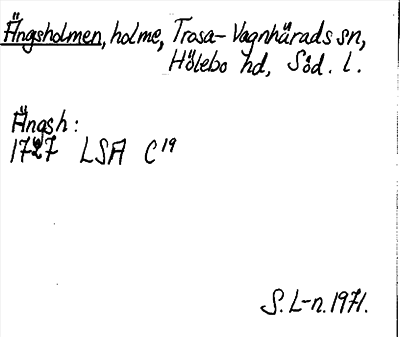 Ängsholmen, holme, Trosa-Vagnhärads sn,
Hölebo hd, Söd. l.
Ängsh:
1727 LSA C19
S. L-n. 1971.